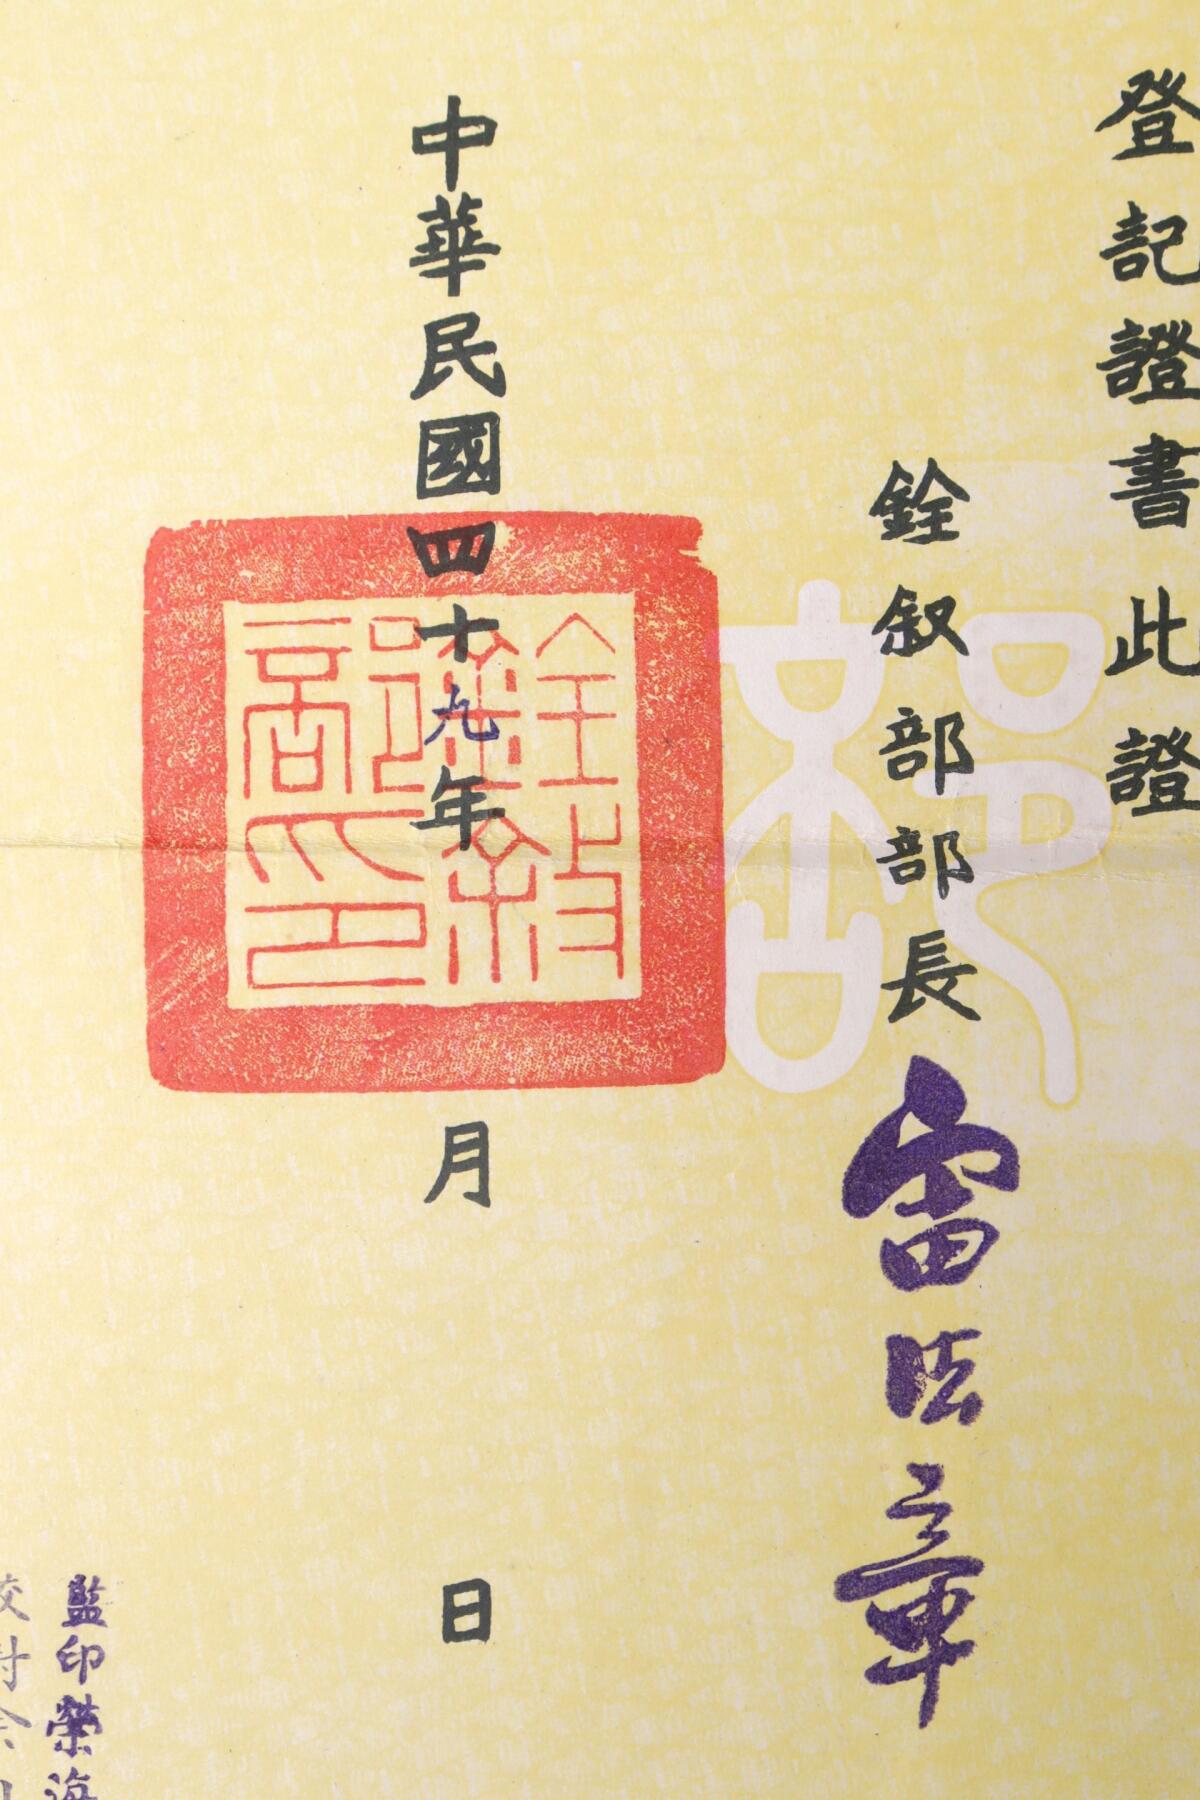 登記證書此證
部
銓叙部部長雷法章
銓敘部印
中華民國四十九年　月　日
監印榮海
校對